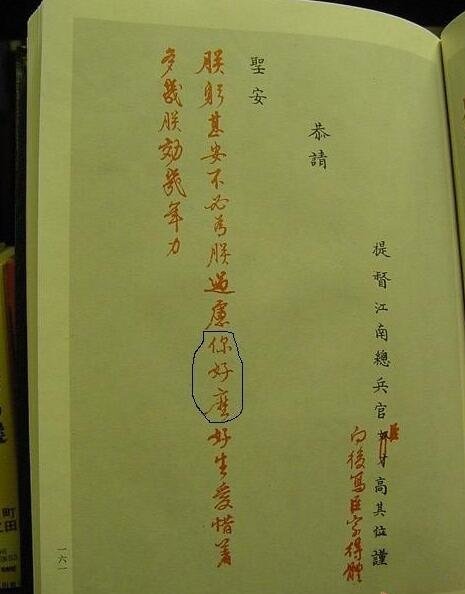 提督江南總兵官奴才高其位謹
臣
向後寫臣字得體
恭請
聖安
朕躬甚安不必為朕過慮你好麽好生愛惜着
多朕効幾年力
一六一
町
田